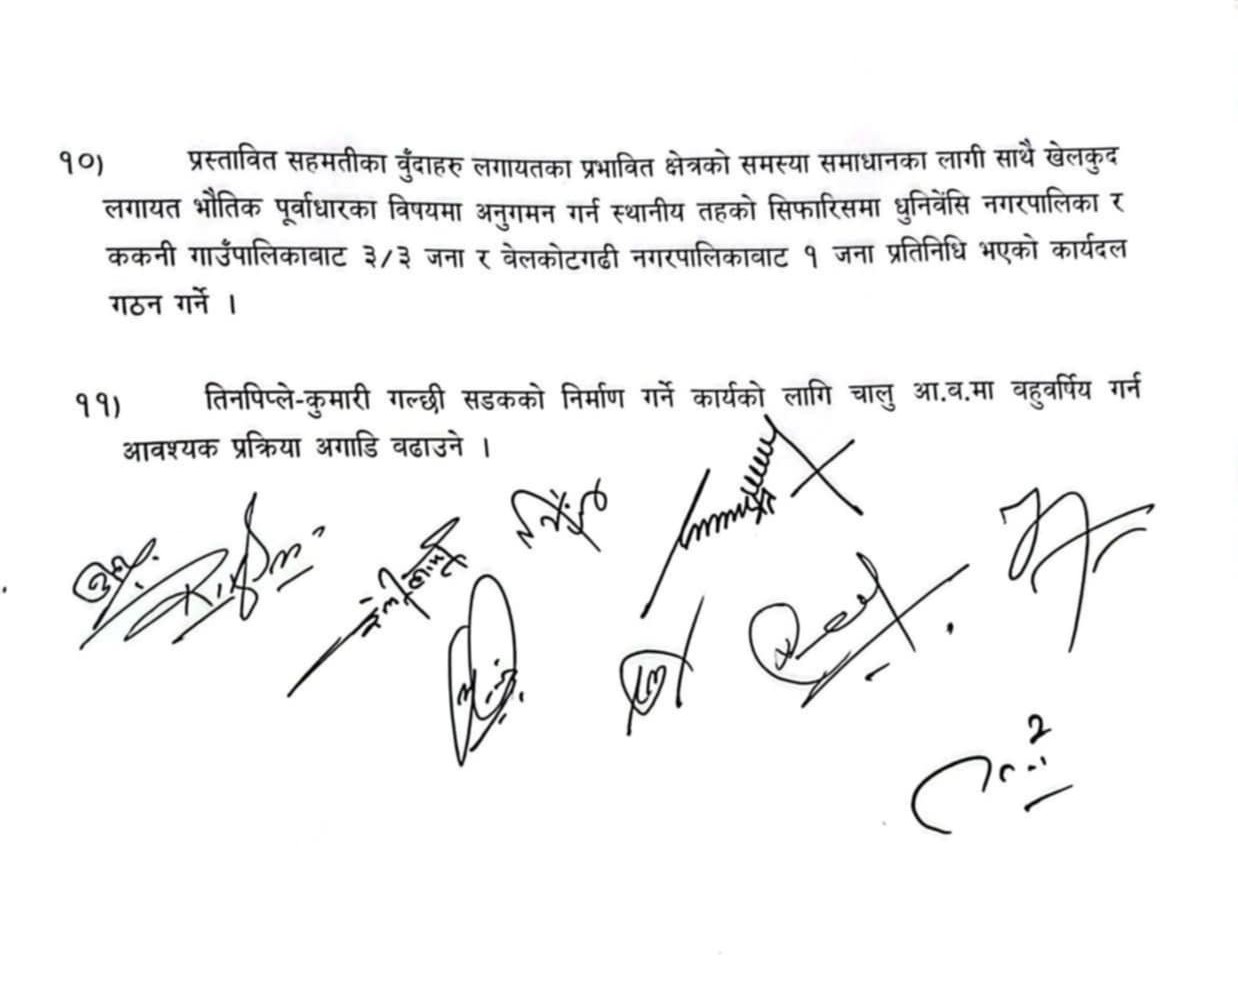 १०) प्रस्तावित सहमतीका बुँदाहरु लगायतका प्रभावित क्षेत्रको समस्या समाधानका लागी साथै खेलकुद
लगायत भौतिक पूर्वाधारका विषयमा अनुगमन गर्न स्थानीय तहको सिफारिसमा धुनिवेंसि नगरपालिका र
ककनी गाउँपालिकाबाट ३/३ जना र बेलकोटगढी नगरपालिकाबाट १ जना प्रतिनिधि भएको कार्यदल
गठन गर्ने ।
११) तिनपिप्ले-कुमारी गल्छी सडकको निर्माण गर्ने कार्यको लागि चालु आ.व.मा बहुवर्षिय गर्न
आवश्यक प्रक्रिया अगाडि बढाउने ।